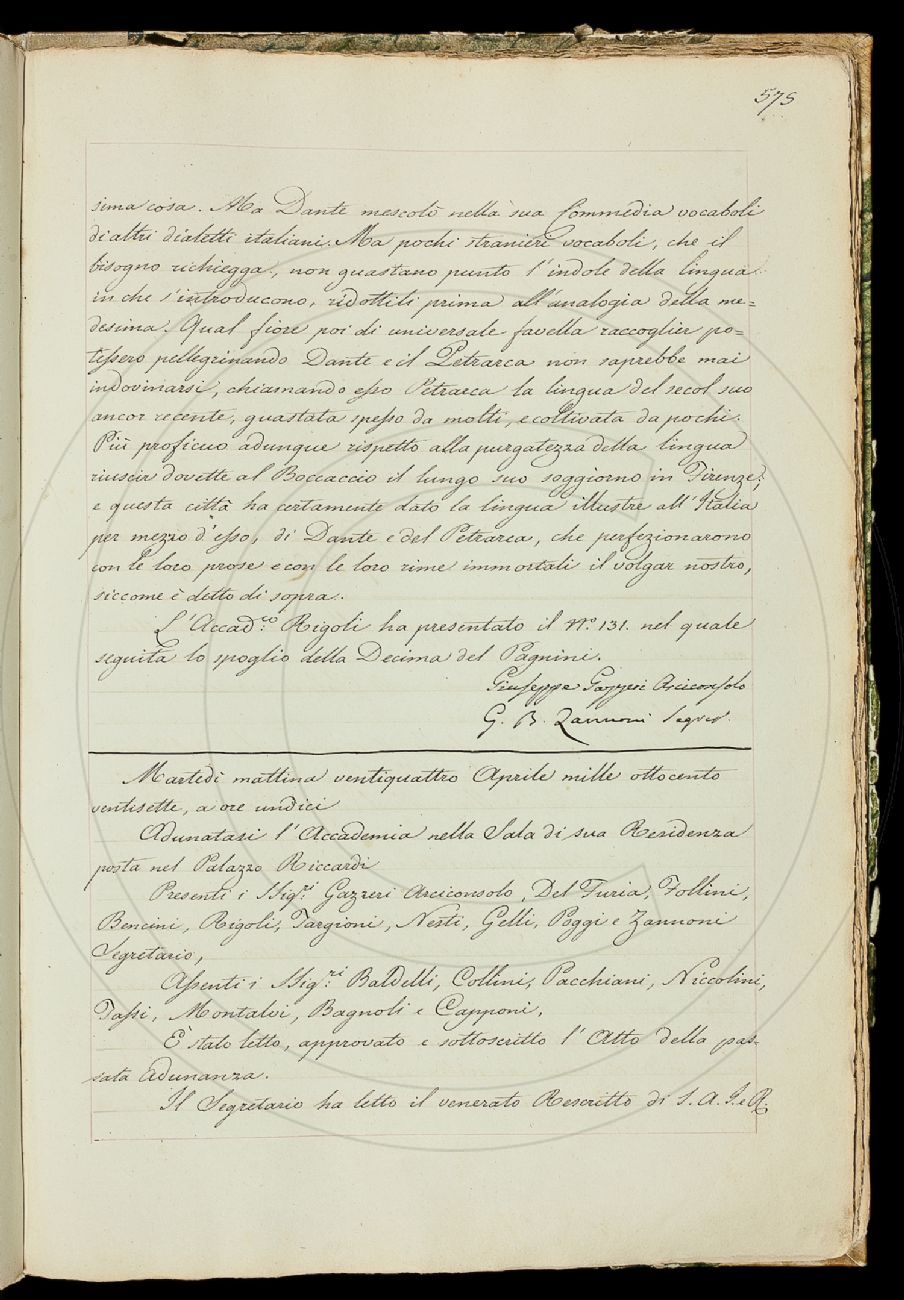 575
sima cosa. Ma Dante mescolò nella sua Commedia vocaboli
di altri dialetti italiani. Ma pochi stranieri vocaboli, che il
bisogno richiegga, non guastano punto l'indole della lingua
in che s'introducono, ridottili prima all'analogia della me=
desima. Qual fiore poi di universale favella raccoglier po=
tessero pellegrinando Dante e il Petrarca non saprebbe mai
indovinarsi, chiamando esso Petrarca la lingua del secol suo
ancor recente, guastata spesso da molti, e coltivata da pochi.
Più proficuo adunque rispetto alla purgatezza della lingua
riuscir dovette al Boccaccio il lungo suo soggiorno in Firenze;
e questa città ha certamente dato la lingua illustre all'Italia
per mezzo d'esso, di Dante e del Petrarca, che perfezionarono
con le loro prose e con le loro rime immortali il volgar nostro,
siccome è detto di sopra.
L'Accad.co Rigoli ha presentato il N.o 131. nel quale
seguita lo spoglio della Decima del Pagnini.
Giuseppe Gazzeri Arciconsolo
G. B. Zannoni Segret.
Martedì mattina ventiquattro Aprile mille ottocento
ventisette, a ore undici
Adunatasi l'Accademia nella Sala di sua Residenza
posta nel Palazzo Riccardi
Presenti i Sig.ri Gazzeri Arciconsolo, Del Furia, Follini,
Bencini, Rigoli, Targioni, Nesti, Gelli, Poggi e Zannoni
Segretario,
Assenti i Sig.ri Baldelli, Collini, Pacchiani, Niccolini,
Tassi, Montalvi, Bagnoli e Capponi,
È stato letto, approvato e sottoscritto l'Atto della pas-
sata Adunanza.
Il Segretario ha letto il venerato Rescritto di S. A. I. e R.